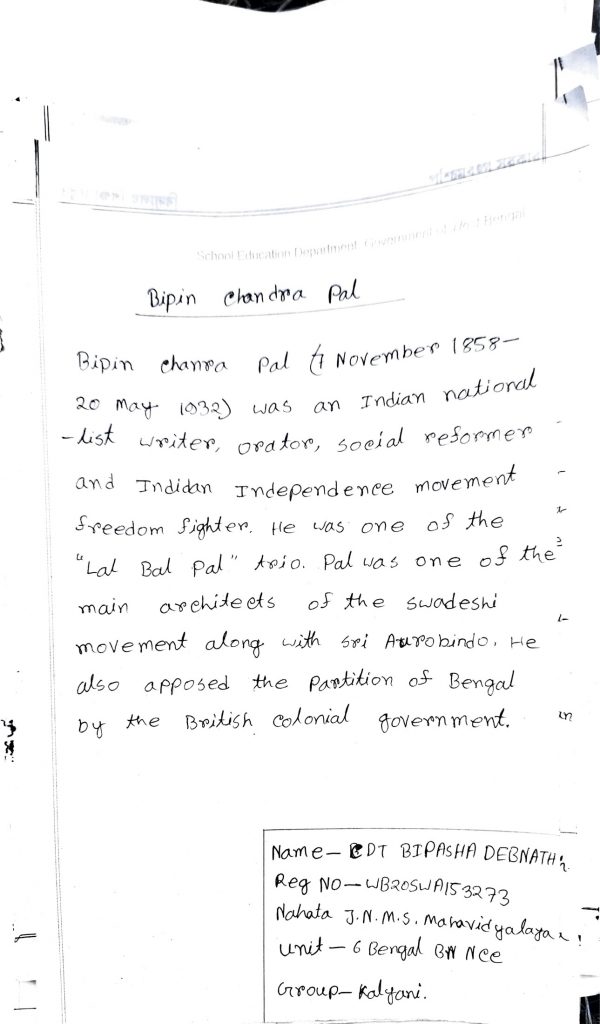 School Education Department, Government of West Bengal
Bipin Chandra Pal
Bipin Chanra Pal (7 November 1858-
20 May 1932) was an Indian national
-list writer, orator, social reformer
and Indidan Independence movement
freedom fighter. He was one of the
"Lal Bal Pal" trio. Pal was one of the
main architects of the swadeshi
movement along with Sri Aurobindo. He
also apposed the Partition of Bengal
by the British colonial government.
Name- CDT BIPASHA DEBNATH
Reg NO-WB20SWA153273
Nahata J.N.M.S. Mahavidyalaya
Unit - 6 Bengal BN NCC
Group- Kalyani.